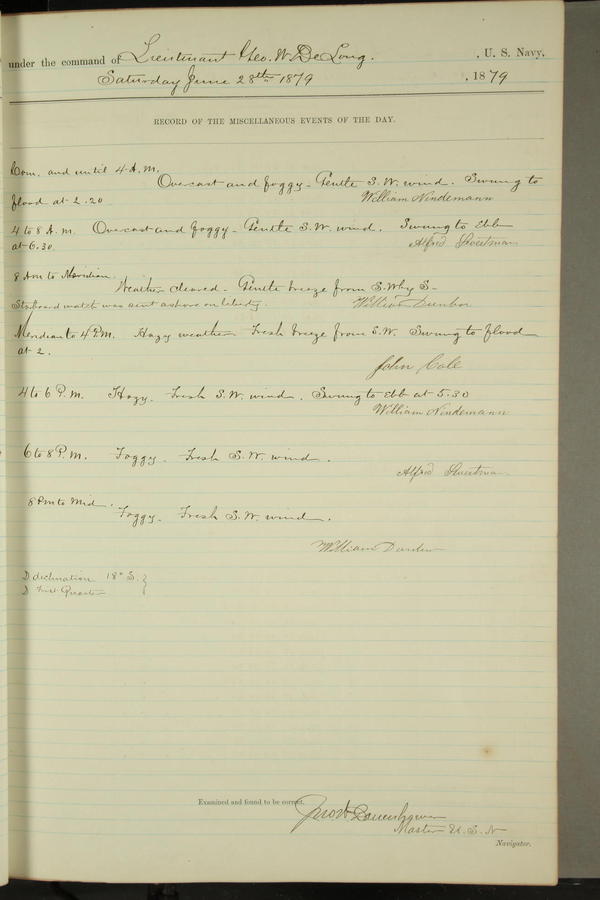 under the command of Lieutenant Geo. W. De Long. , U. S. Navy,
Saturday June 28th 1879 , 1879
RECORD OF THE MISCELLANEOUS EVENTS OF THE DAY.
Com. and until 4 A.M.
Overcast and foggy - Gentle S.W. wind. Swung to
flood at 2.20 William Nindemann
4 to 8 A.M. Overcast and foggy - Gentle S.W. wind. Swung to Ebb
at 6.30. Alfred Sweetman
8 Am to Meridian.
Weather cleared - Gentle breeze from S.Why S-
Starboard watch was sent ashore on liberty. William Dunbar
Meridian to 4 P.M. Hazy weather - Fresh breeze from S.W. Swung to flood
at 2.
John Cole
4 to 6 P.M. Hazy - Fresh S.W. wind. Swung to Ebb at 5.30
William Nindemann
6 to 8 P.M. Foggy - Fresh S.W. wind.
Alfred Sweetman
8 Pm to Mid.
Foggy - Fresh S.W. wind.
William Dunbar
☽ declination 18° S. }
☽ First Quarter
Examined and found to be correct.
Danenhower
Master U.S.N
Navigator.